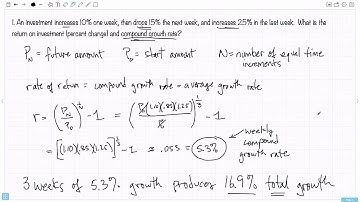 1. An investment increases 10% one week, then drops 15% the next week, and increases 25% in the last week. What is the
return on investment (percent change) and compound growth rate?
P_N = future amount P_0 = start amount N = number of equal time
increments
rate of return = compound growth rate = average growth rate
r = (P_N/P_0)^(1/N) - 1 = (P_0(1.10)(.85)(1.25)/P_0)^(1/3) - 1
= [(1.10)(.85)(1.25)]^(1/3) - 1 ≈ .053 = 5.3%
weekly
compound
growth rate
3 weeks of 5.3% growth produces 16.9% total growth